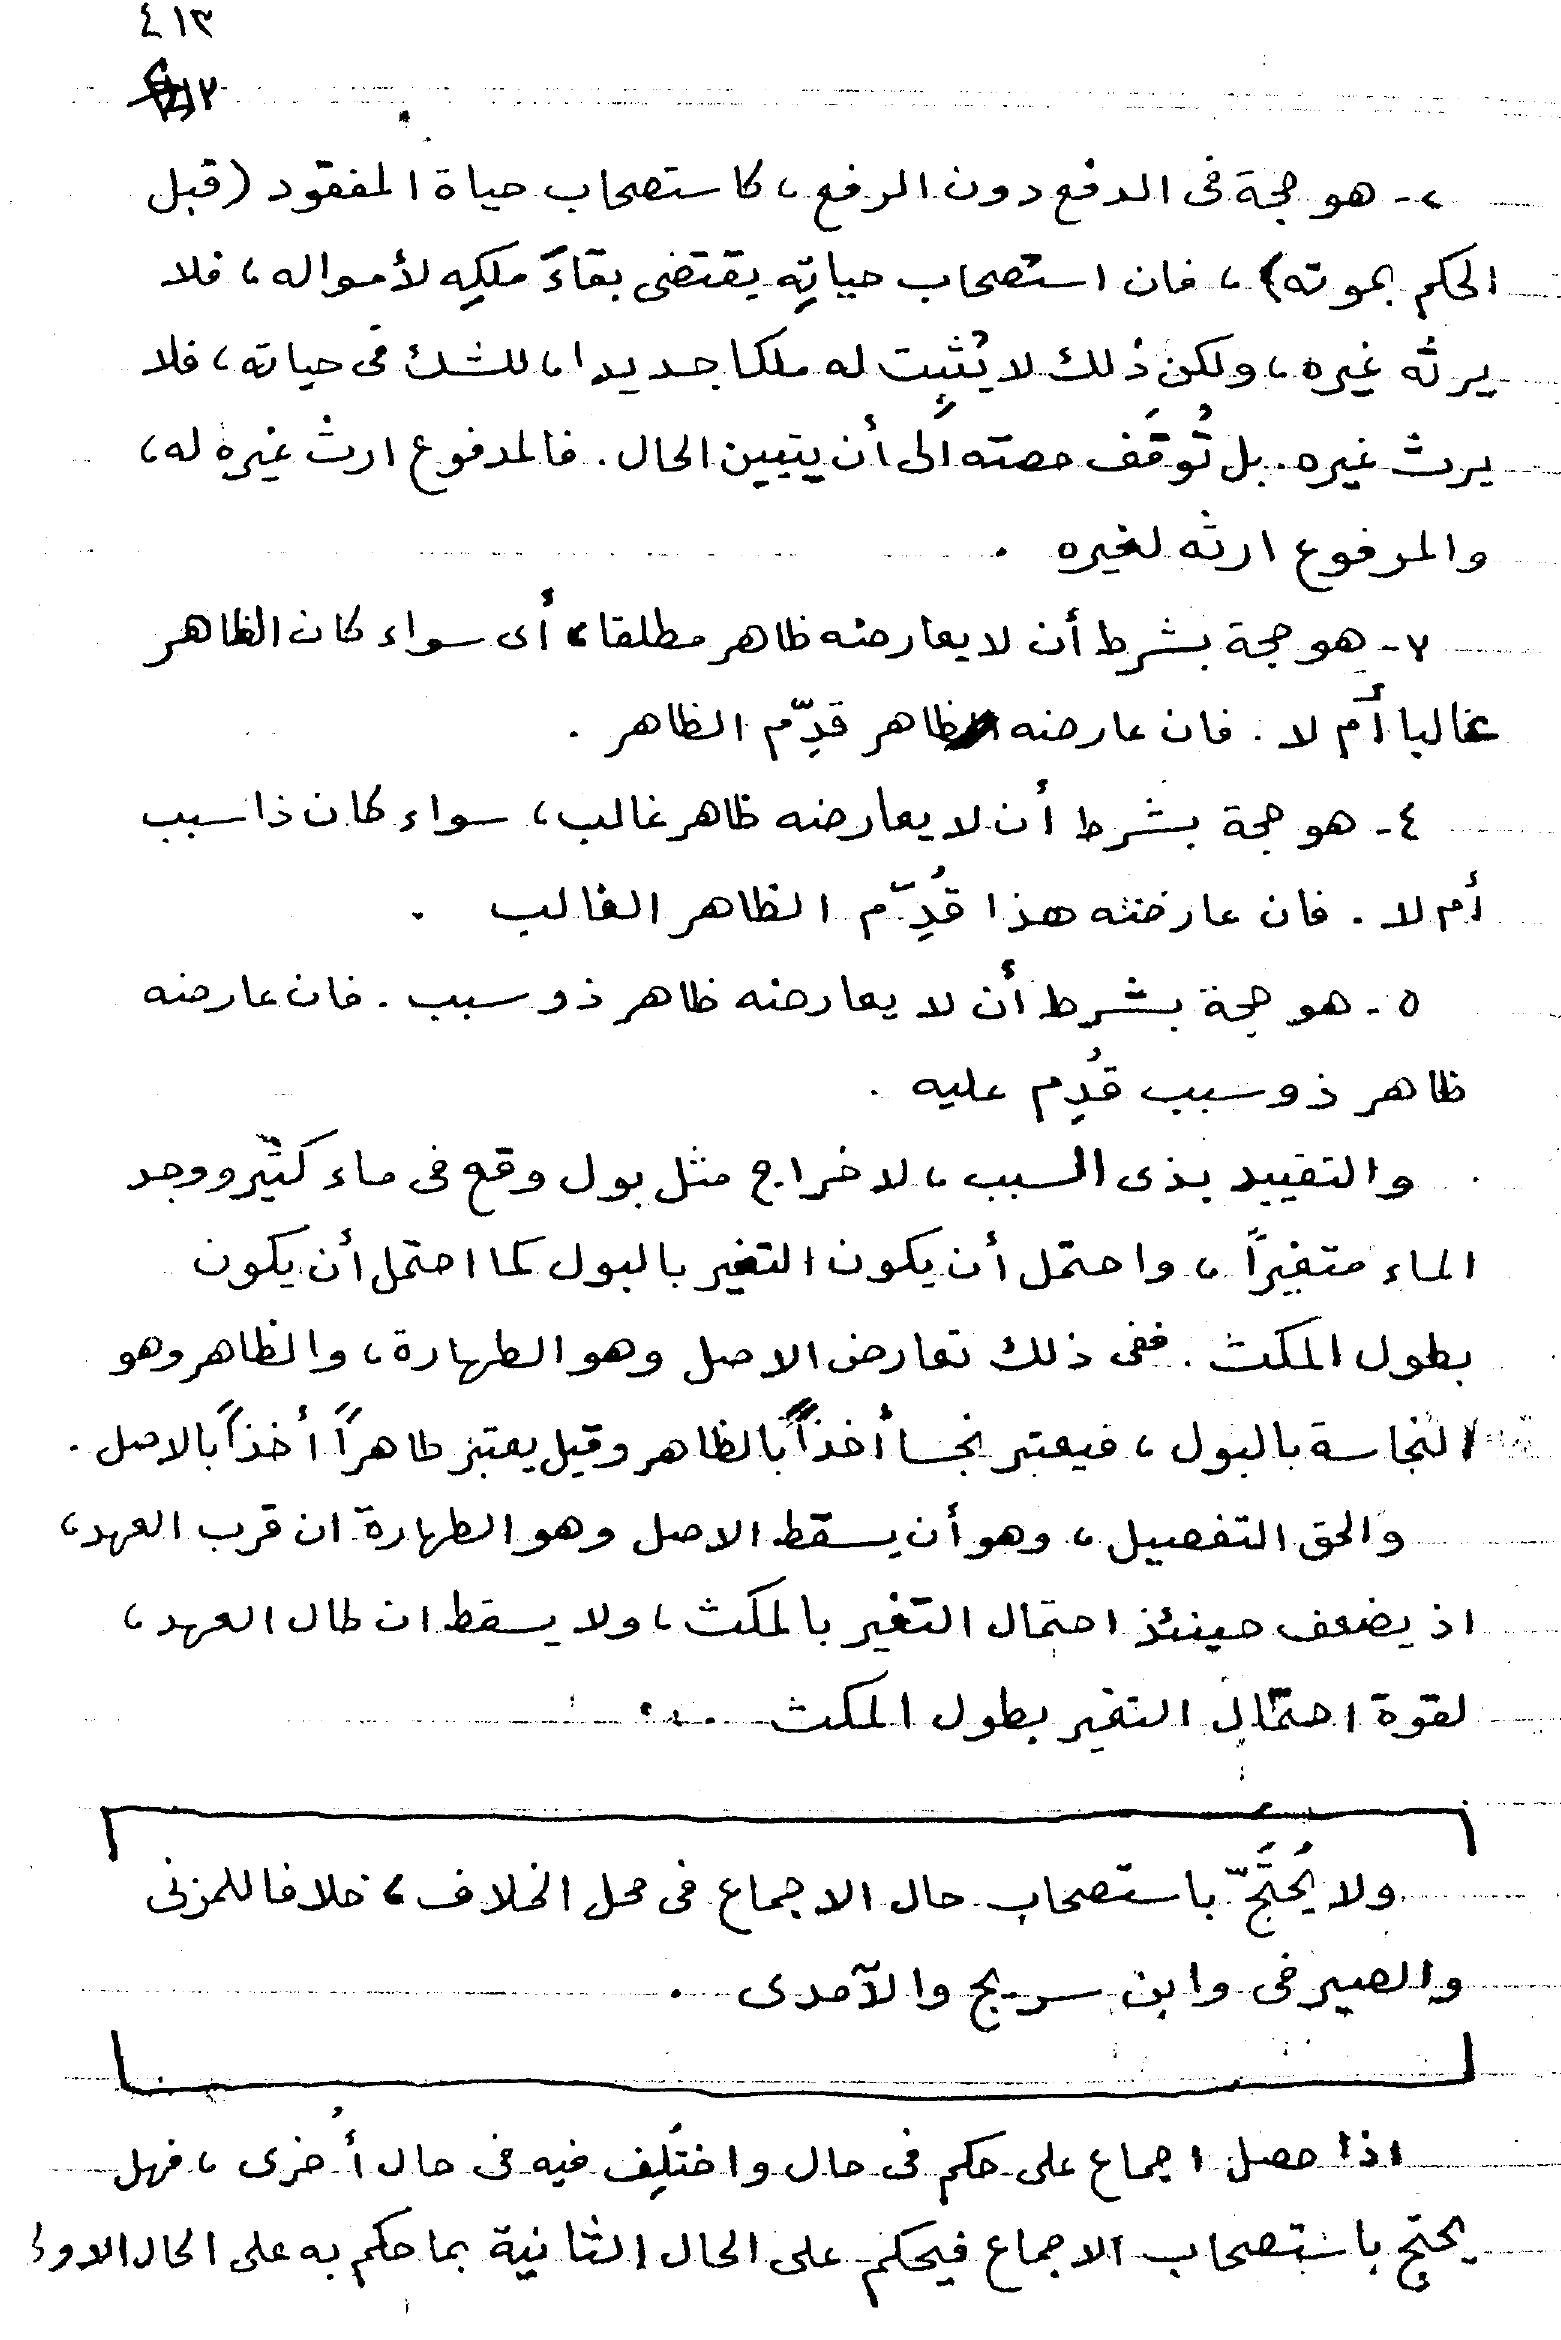 ٤١٣
٢- هو حجة فى الدفع دون الرفع، كاستصحاب حياة المفقود (قبل
الحكم بموته)، فان استصحاب حياتِه يقتضى بقاءَ ملكِه لأمواله، فلا
يرثُه غيره، ولكن ذلك لا يُثبِت له ملكا جديدا، للشك فى حياته، فلا
يرث غيره. بل تُوقَف حصته الى أن يتبين الحال. فالمدفوع ارث غيره له،
والمرفوع ارثه لغيره .
٧- هو حجة بشرط أن لا يعارضه ظاهر مطلقا، أى سواء كان الظاهر
غالبا أم لا. فان عارضه ظاهر قدِّم الظاهر .
٤- هو حجة بشرط أن لا يعارضه ظاهر غالب، سواء كان ذا سبب
أم لا. فان عارضه هذا قُدِّم الظاهر الغالب .
٥- هو حجة بشرط أن لا يعارضه ظاهر ذو سبب. فان عارضه
ظاهر ذو سبب قُدِم عليه .
والتقييد بذى السبب، لاخراج مثل بول وقع فى ماء كثير ووجد
الماء متغيراً، واحتمل أن يكون التغير بالبول كما احتمل أن يكون
بطول المكث. ففى ذلك تعارض الاصل وهو الطهارة، والظاهر وهو
النجاسة بالبول، فيعتبر نجسا أخذاً بالظاهر وقيل يعتبر طاهراً أخذاً بالاصل.
والحق التفصيل، وهو أن يسقط الاصل وهو الطهارة ان قرب العهد،
اذ يضعف حينئذ احتمال التغير بالمكث، ولا يسقط ان طال العهد،
لقوة احتمال التغير بطول المكث ..
ولا يُحتَجّ باستصحاب حال الاجماع فى محل الخلاف، خلافا للمزنى
والصيرفى وابن سريج والآمدى .
اذا حصل اجماع على حكم فى حال واختُلِف فيه فى حال أُخرى، فهل
يحتج باستصحاب الاجماع فيحكم على الحال الثانية بما حكم به على الحال الاولى